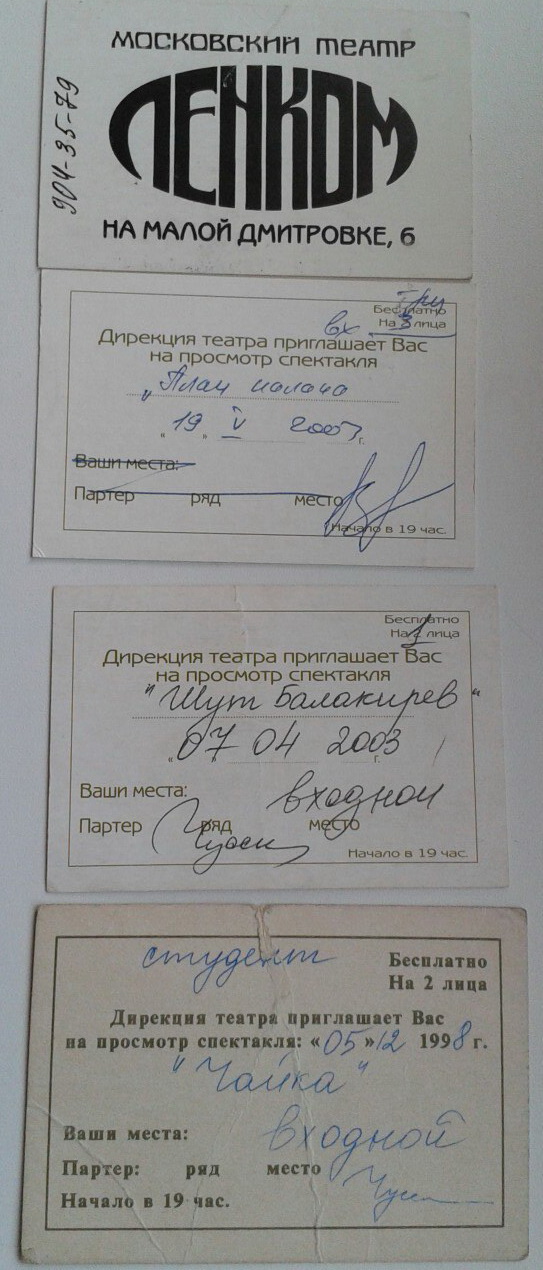 МОСКОВСКИЙ ТЕАТР
ЛЕНКОМ
НА МАЛОЙ ДМИТРОВКЕ, 6
904-35-79
Бесплатно
вх. На 3 лица
Три
Дирекция театра приглашает Вас
на просмотр спектакля
„Плач палача
„19„ V 2003 г.
Ваши места:
Партер ряд место
Начало в 19 час.
Бесплатно
На 1 лица
Дирекция театра приглашает Вас
на просмотр спектакля
"Шут Балакирев"
„07„ 04 2003 г.
Ваши места: входной
Партер ряд место
Начало в 19 час.
студент
Бесплатно
На 2 лица
Дирекция театра приглашает Вас
на просмотр спектакля: «05»12 1998 г.
"Чайка"
Ваши места: входной
Партер: ряд место
Начало в 19 час.